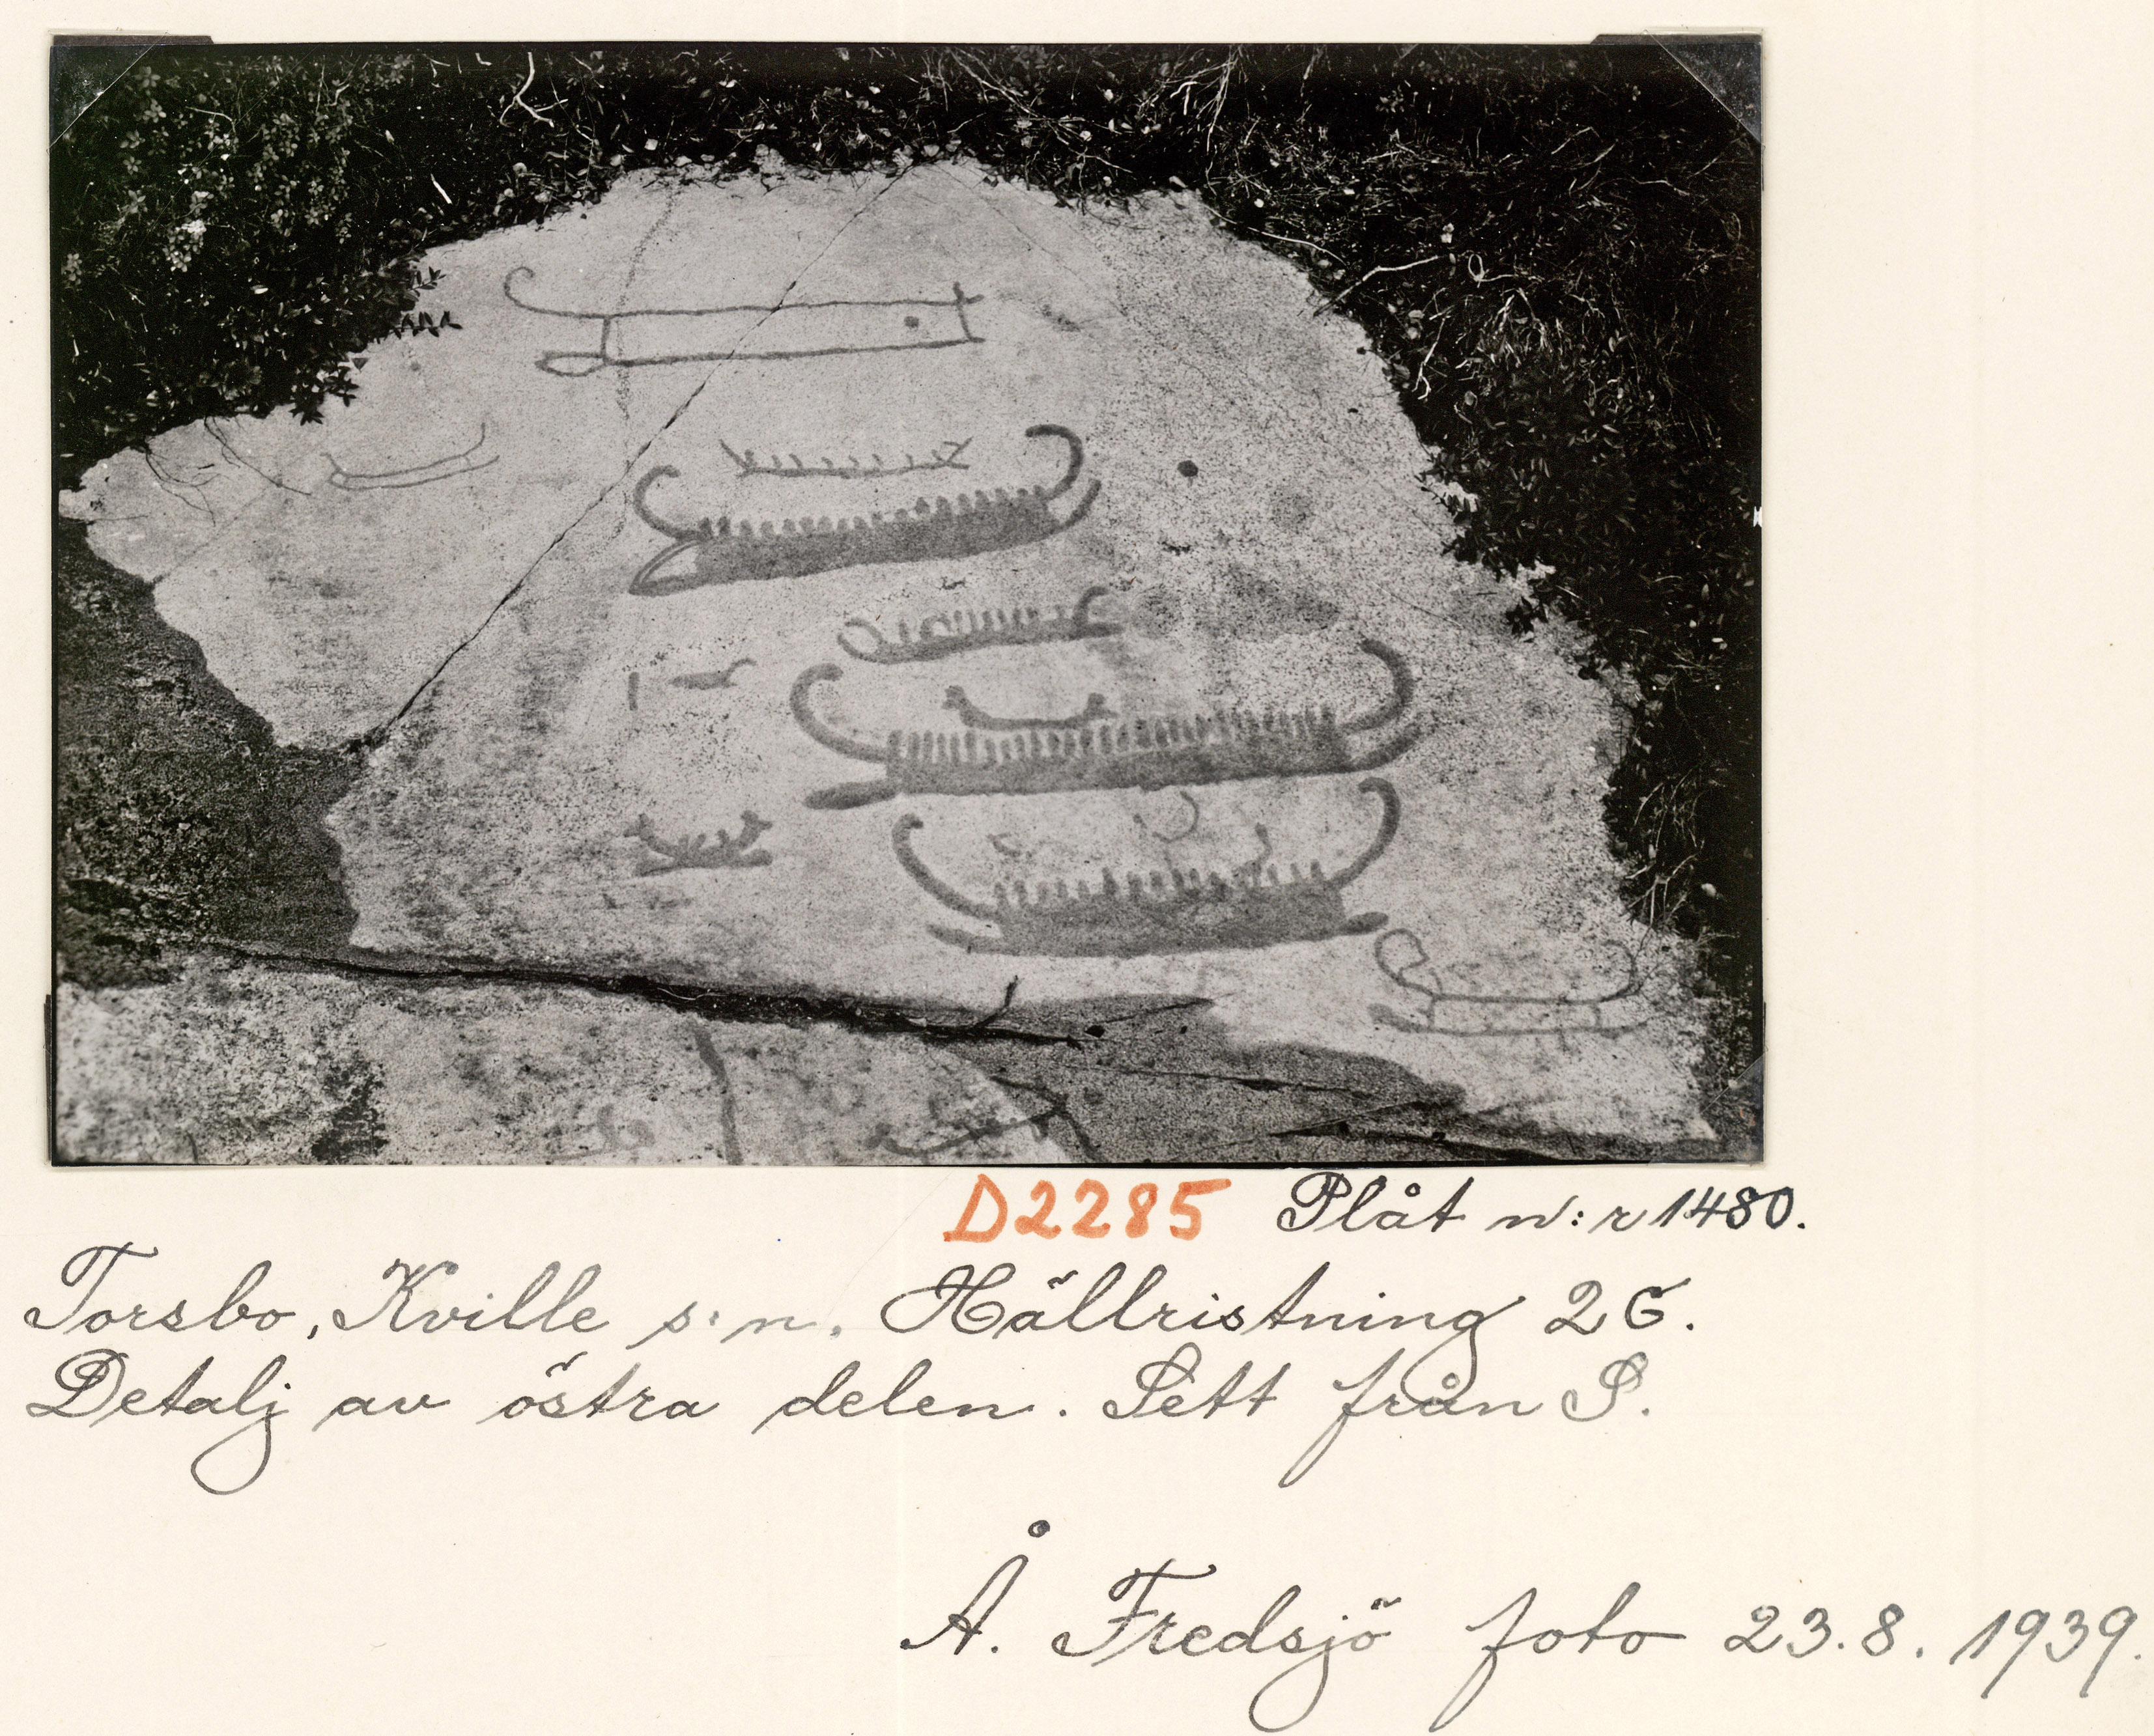 D2285 Plåt n:r 1480.
Torsbo, Kville s:n. Hällristning 26.
Detalj av östra delen. Sett från S.
Å. Fredsjö foto 23.8. 1939.